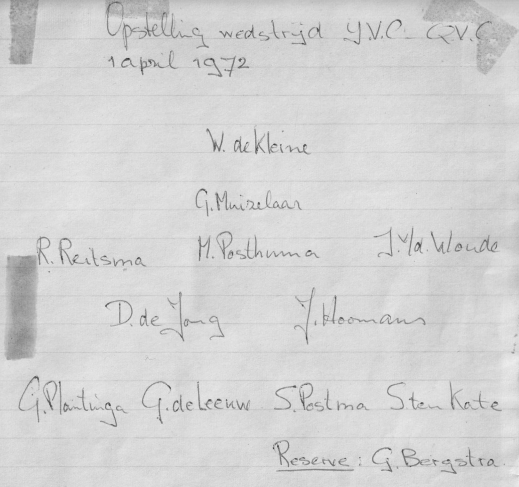 Opstelling wedstrijd Y.V.C - QV.C
1 april 1972
W. de Kleine
G. Muizelaar
R. Reitsma M. Posthuma J. v/d. Woude
D. de Jong J. Hoomans
G. Plantinga G. de Leeuw S. Postma S ten Kate
Reserve: G. Bergstra.